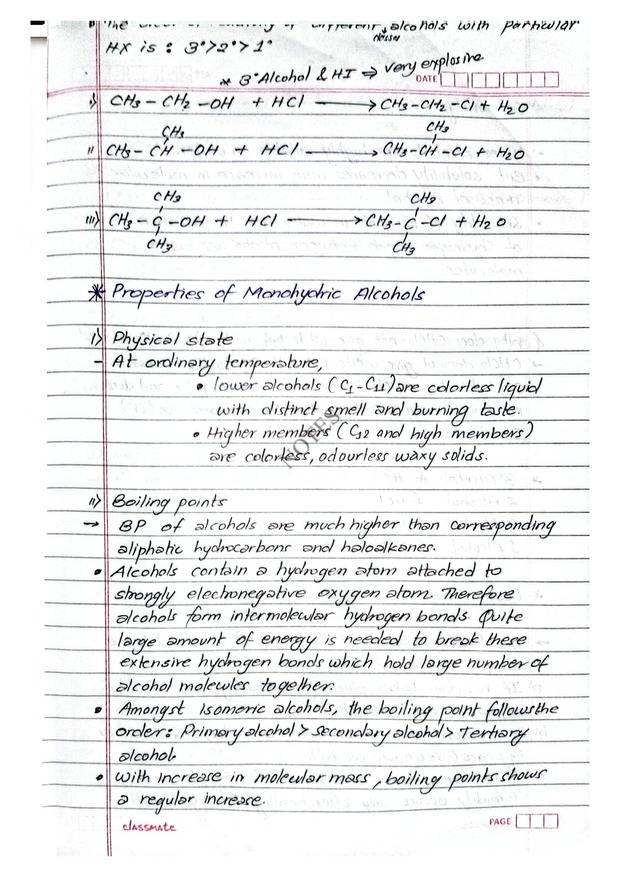 The order of reactivity of different classes alcohols with particular
HX is : 3°>2°>1°
* 3° Alcohol & HI ⇒ very explosive
DATE
i) CH3 – CH2 – OH + HCl ⟶ CH3 – CH2 – Cl + H2O
CH3 CH3
ii CH3 – CH – OH + HCl ⟶ CH3 – CH – Cl + H2O
CH3 CH3
iii) CH3 – C – OH + HCl ⟶ CH3 – C – Cl + H2O
CH3 CH3
* Properties of Monohydric Alcohols
i) Physical state
– At ordinary temperature,
• lower alcohols (C1 – C11) are colorless liquid
with distinct smell and burning taste.
• Higher members (C12 and high members)
are colorless, odourless waxy solids.
NOTES
ii) Boiling points
→ BP of alcohols are much higher than corresponding
aliphatic hydrocarbons and haloalkanes.
• Alcohols contain a hydrogen atom attached to
strongly electronegative oxygen atom. Therefore
alcohols form intermolecular hydrogen bonds. Quite
large amount of energy is needed to break these
extensive hydrogen bonds which hold large number of
alcohol molecules together.
• Amongst isomeric alcohols, the boiling point follows the
order: Primary alcohol > secondary alcohol > Tertiary
alcohol
• with increase in molecular mass, boiling points shows
a regular increase.
classmate
PAGE